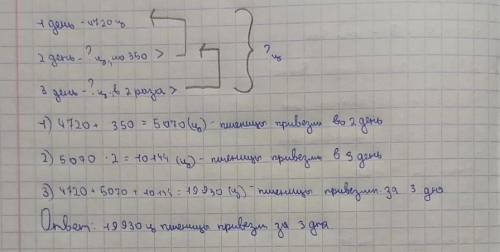 1 день - 4720 ц
2 день - ? ц, на 350 >
? ц
3 день - ? ц, в 2 раза >
1) 4720 + 350 = 5070 (ц) - пшеницы привезли во 2 день
2) 5070 · 2 = 10144 (ц) - пшеницы привезли в 3 день
3) 4720 + 5070 + 10144 = 19930 (ц) - пшеницы привезли за 3 дня
Ответ: 19930 ц пшеницы привезли за 3 дня